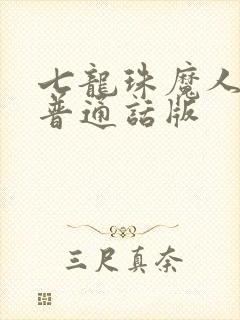 七龍珠魔人
普通話版
三尺真奈